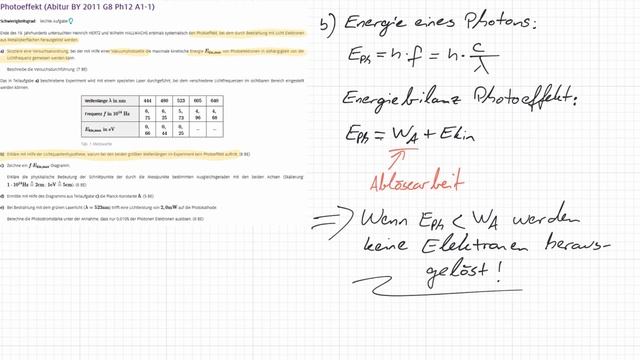 Photoeffekt (Abitur BY 2011 G8 Ph12 A1-1)
Schwierigkeitsgrad: leichte Aufgabe
Ende des 19. Jahrhunderts untersuchten Heinrich HERTZ und Wilhelm HALLWACHS erstmals systematisch den Photoeffekt, bei dem durch Bestrahlung mit Licht Elektronen
aus Metalloberflächen herausgelöst werden.
a) Skizziere eine Versuchsanordnung, bei der mit Hilfe einer Vakuumphotozelle die maximale kinetische Energie E_kin,max von Photoelektronen in Abhängigkeit von der
Lichtfrequenz gemessen werden kann.
Beschreibe die Versuchsdurchführung. (7 BE)
Das in Teilaufgabe a) beschriebene Experiment wird mit einem speziellen Laser durchgeführt, bei dem verschiedene Lichtfrequenzen im sichtbaren Bereich eingestellt
werden können.
Wellenlänge λ in nm 444 480 523 605 640
Frequenz f in 10¹⁴ Hz 6,75 6,25 5,73 4,96 4,68
E_kin,max in eV 0,66 0,44 0,25 – –
Tab. 1 Messwerte
b) Erkläre mit Hilfe der Lichtquantenhypothese, warum bei den beiden größten Wellenlängen im Experiment kein Photoeffekt auftritt. (6 BE)
c) Zeichne ein f-E_kin,max-Diagramm.
Erkläre die physikalische Bedeutung der Schnittpunkte der durch die Messpunkte bestimmten Ausgleichsgeraden mit den beiden Achsen (Skalierung:
1·10¹⁴Hz ≙ 2cm; 1eV ≙ 5cm). (8 BE)
d) Ermittle mit Hilfe des Diagramms aus Teilaufgabe c) die Planck-Konstante h. (5 BE)
e) Bei Bestrahlung mit dem grünen Laserlicht (λ = 523nm) trifft eine Lichtleistung von 2,0mW auf die Photokathode.
Berechne die Photostromstärke unter der Annahme, dass nur 0,010% der Photonen Elektronen auslösen. (6 BE)
b) Energie eines Photons:
E_Ph = h·f = h·c/λ
Energiebilanz Photoeffekt:
E_Ph = W_A + Ekin
Ablösearbeit
⇒ Wenn E_Ph < W_A werden
keine Elektronen heraus-
gelöst!